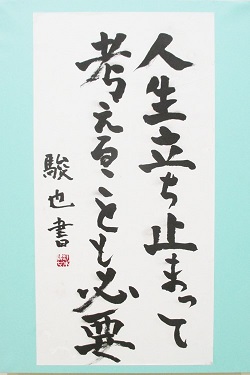 人生立ち止まって
考えることも必要
駿也書